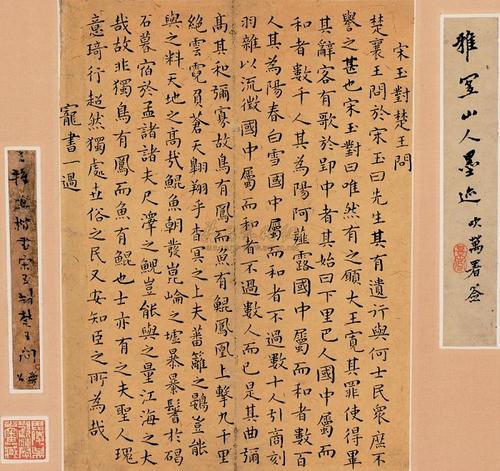 雅宜山人墨迹 吹萬署簽
宋玉對楚王問
楚襄王問於宋玉曰先生其有遺行與何士民衆庶不
譽之甚也宋玉對曰唯然有之願大王寬其罪使得畢
其辭客有歌於郢中者其始曰下里巴人國中屬而
和者數千人其為陽阿薤露國中屬而和者數百
人其為陽春白雪國中屬而和者不過數十人引商刻
羽雜以流徵國中屬而和者不過數人而已是其曲彌
高其和彌寡故鳥有鳳而魚有鯤鳳凰上擊九千里
絶雲霓負蒼天翱翔乎杳冥之上夫蕃籬之鷃豈能
與之料天地之高哉鯤魚朝發崑崙之墟暴暴鬐於碣
石暮宿於孟諸諸夫尺澤之鯢豈能與之量江海之大
哉故非獨鳥有鳳而魚有鯤也士亦有之夫聖人瑰
意琦行超然獨處世俗之民又安知臣之所為哉
寵書一過
楷書宋玉對楚王問